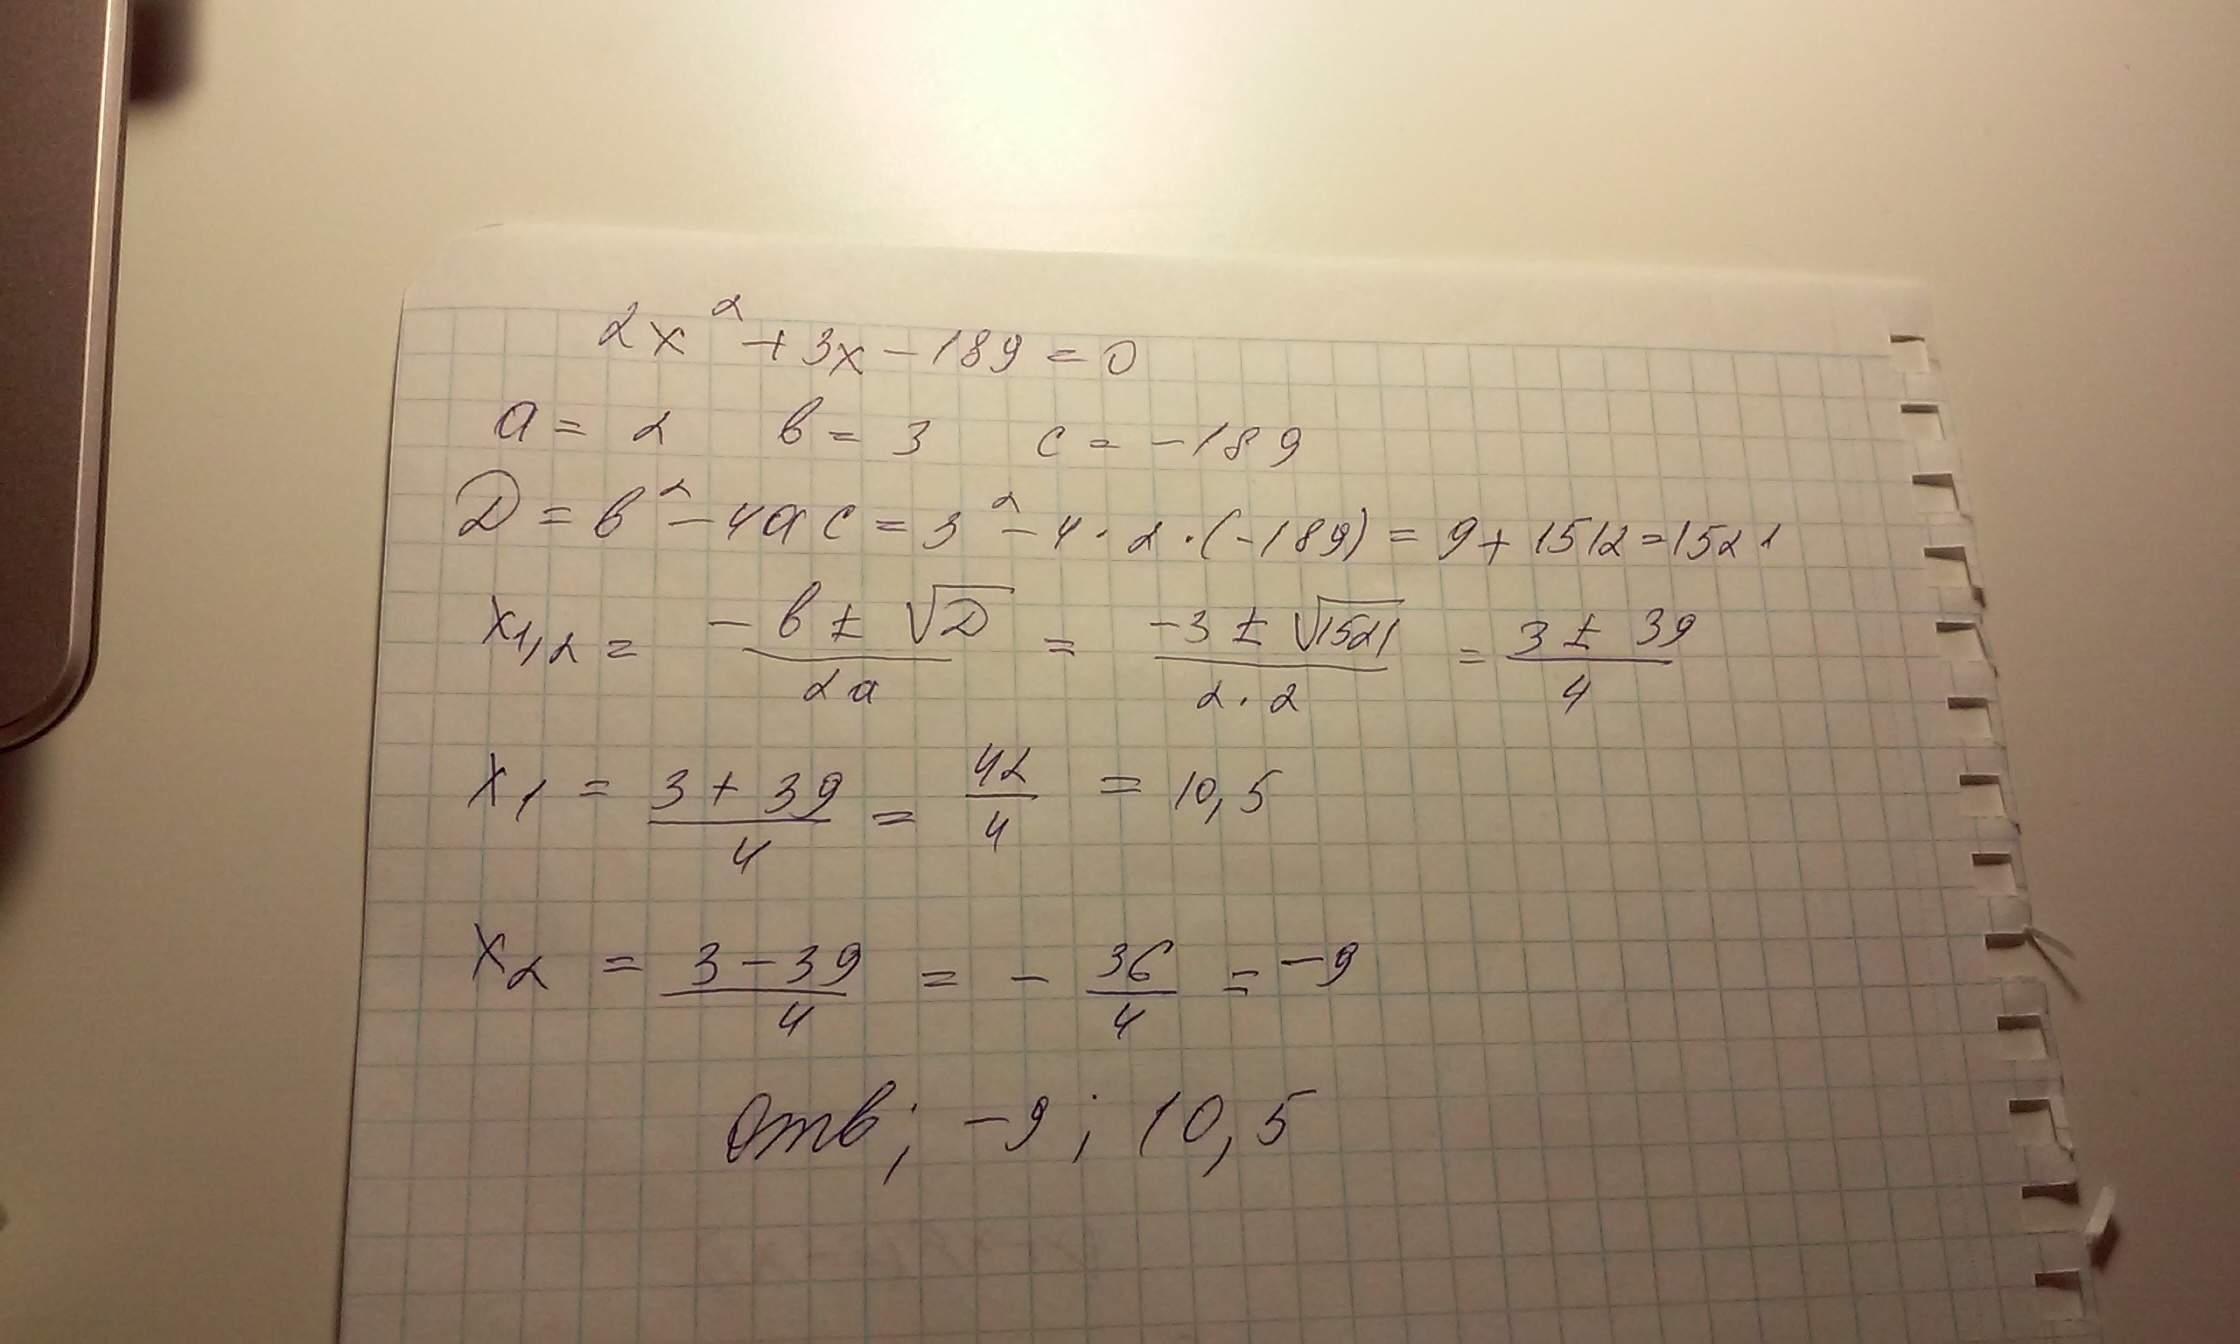 2x² + 3x - 189 = 0
a = 2 b = 3 c = -189
D = b² - 4ac = 3² - 4 · 2 · (-189) = 9 + 1512 = 1521
x1,2 = (-b ± √D)/(2a) = (-3 ± √1521)/(2 · 2) = (3 ± 39)/4
x1 = (3 + 39)/4 = 42/4 = 10,5
x2 = (3 - 39)/4 = - 36/4 = -9
Отв; -9; 10,5